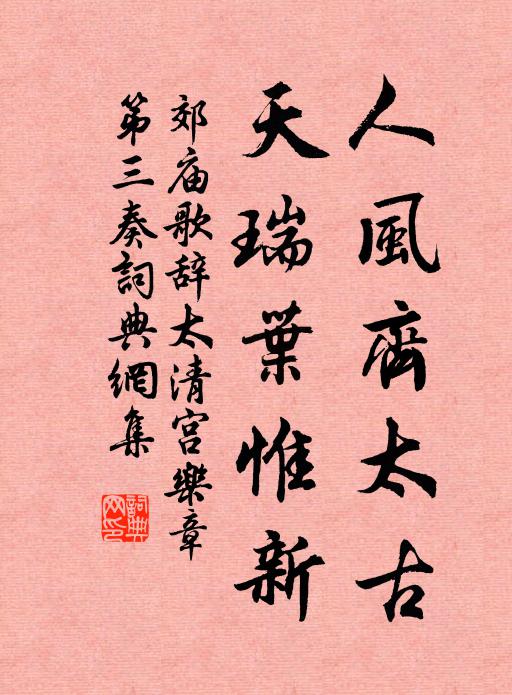 人風齊太古
天瑞葉惟新
郊庙歌辞太清宫樂章
第三奏詞典網集
詞典
网印